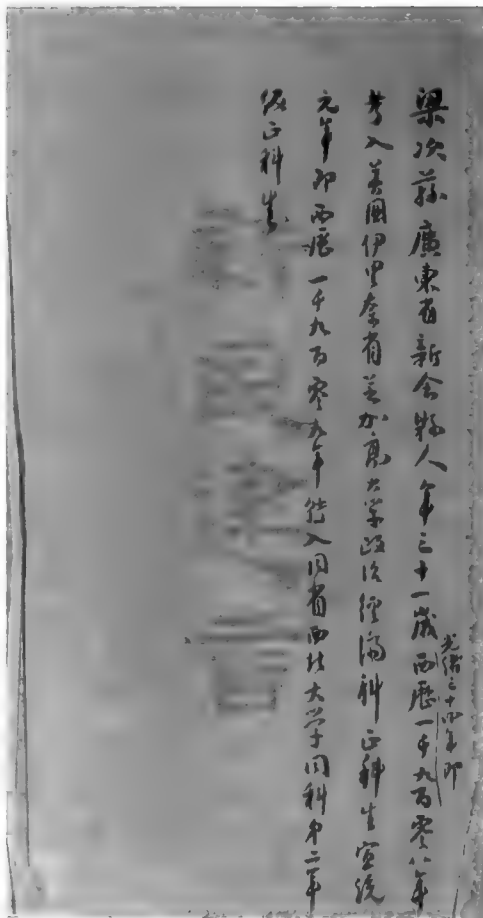 梁次蓀廣東省新會縣人年三十一歲光緒三十四年即西歷一千九百零八年
考入美國伊里奈省芝加高大学政治經濟科正科生宣統
元年即西歷一千九百零九年轉入同省西北大学同科第二年
級正科生